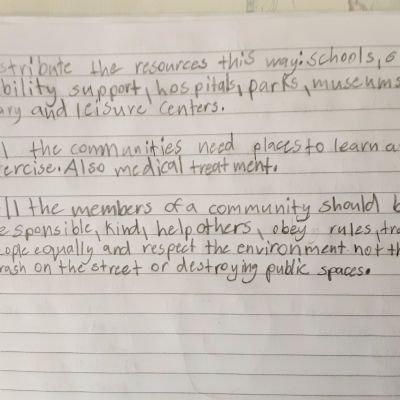 stribute the resources this way: schools,
bility support, hospitals, parks, museums
ary and leisure centers.
l the communities need places to learn a
ercise. Also medical treatment.
ll the members of a community should b
esponsible, kind, help others, obey rules, tr
ople equally and respect the environment not th
rash on the street or destroying public spaces.